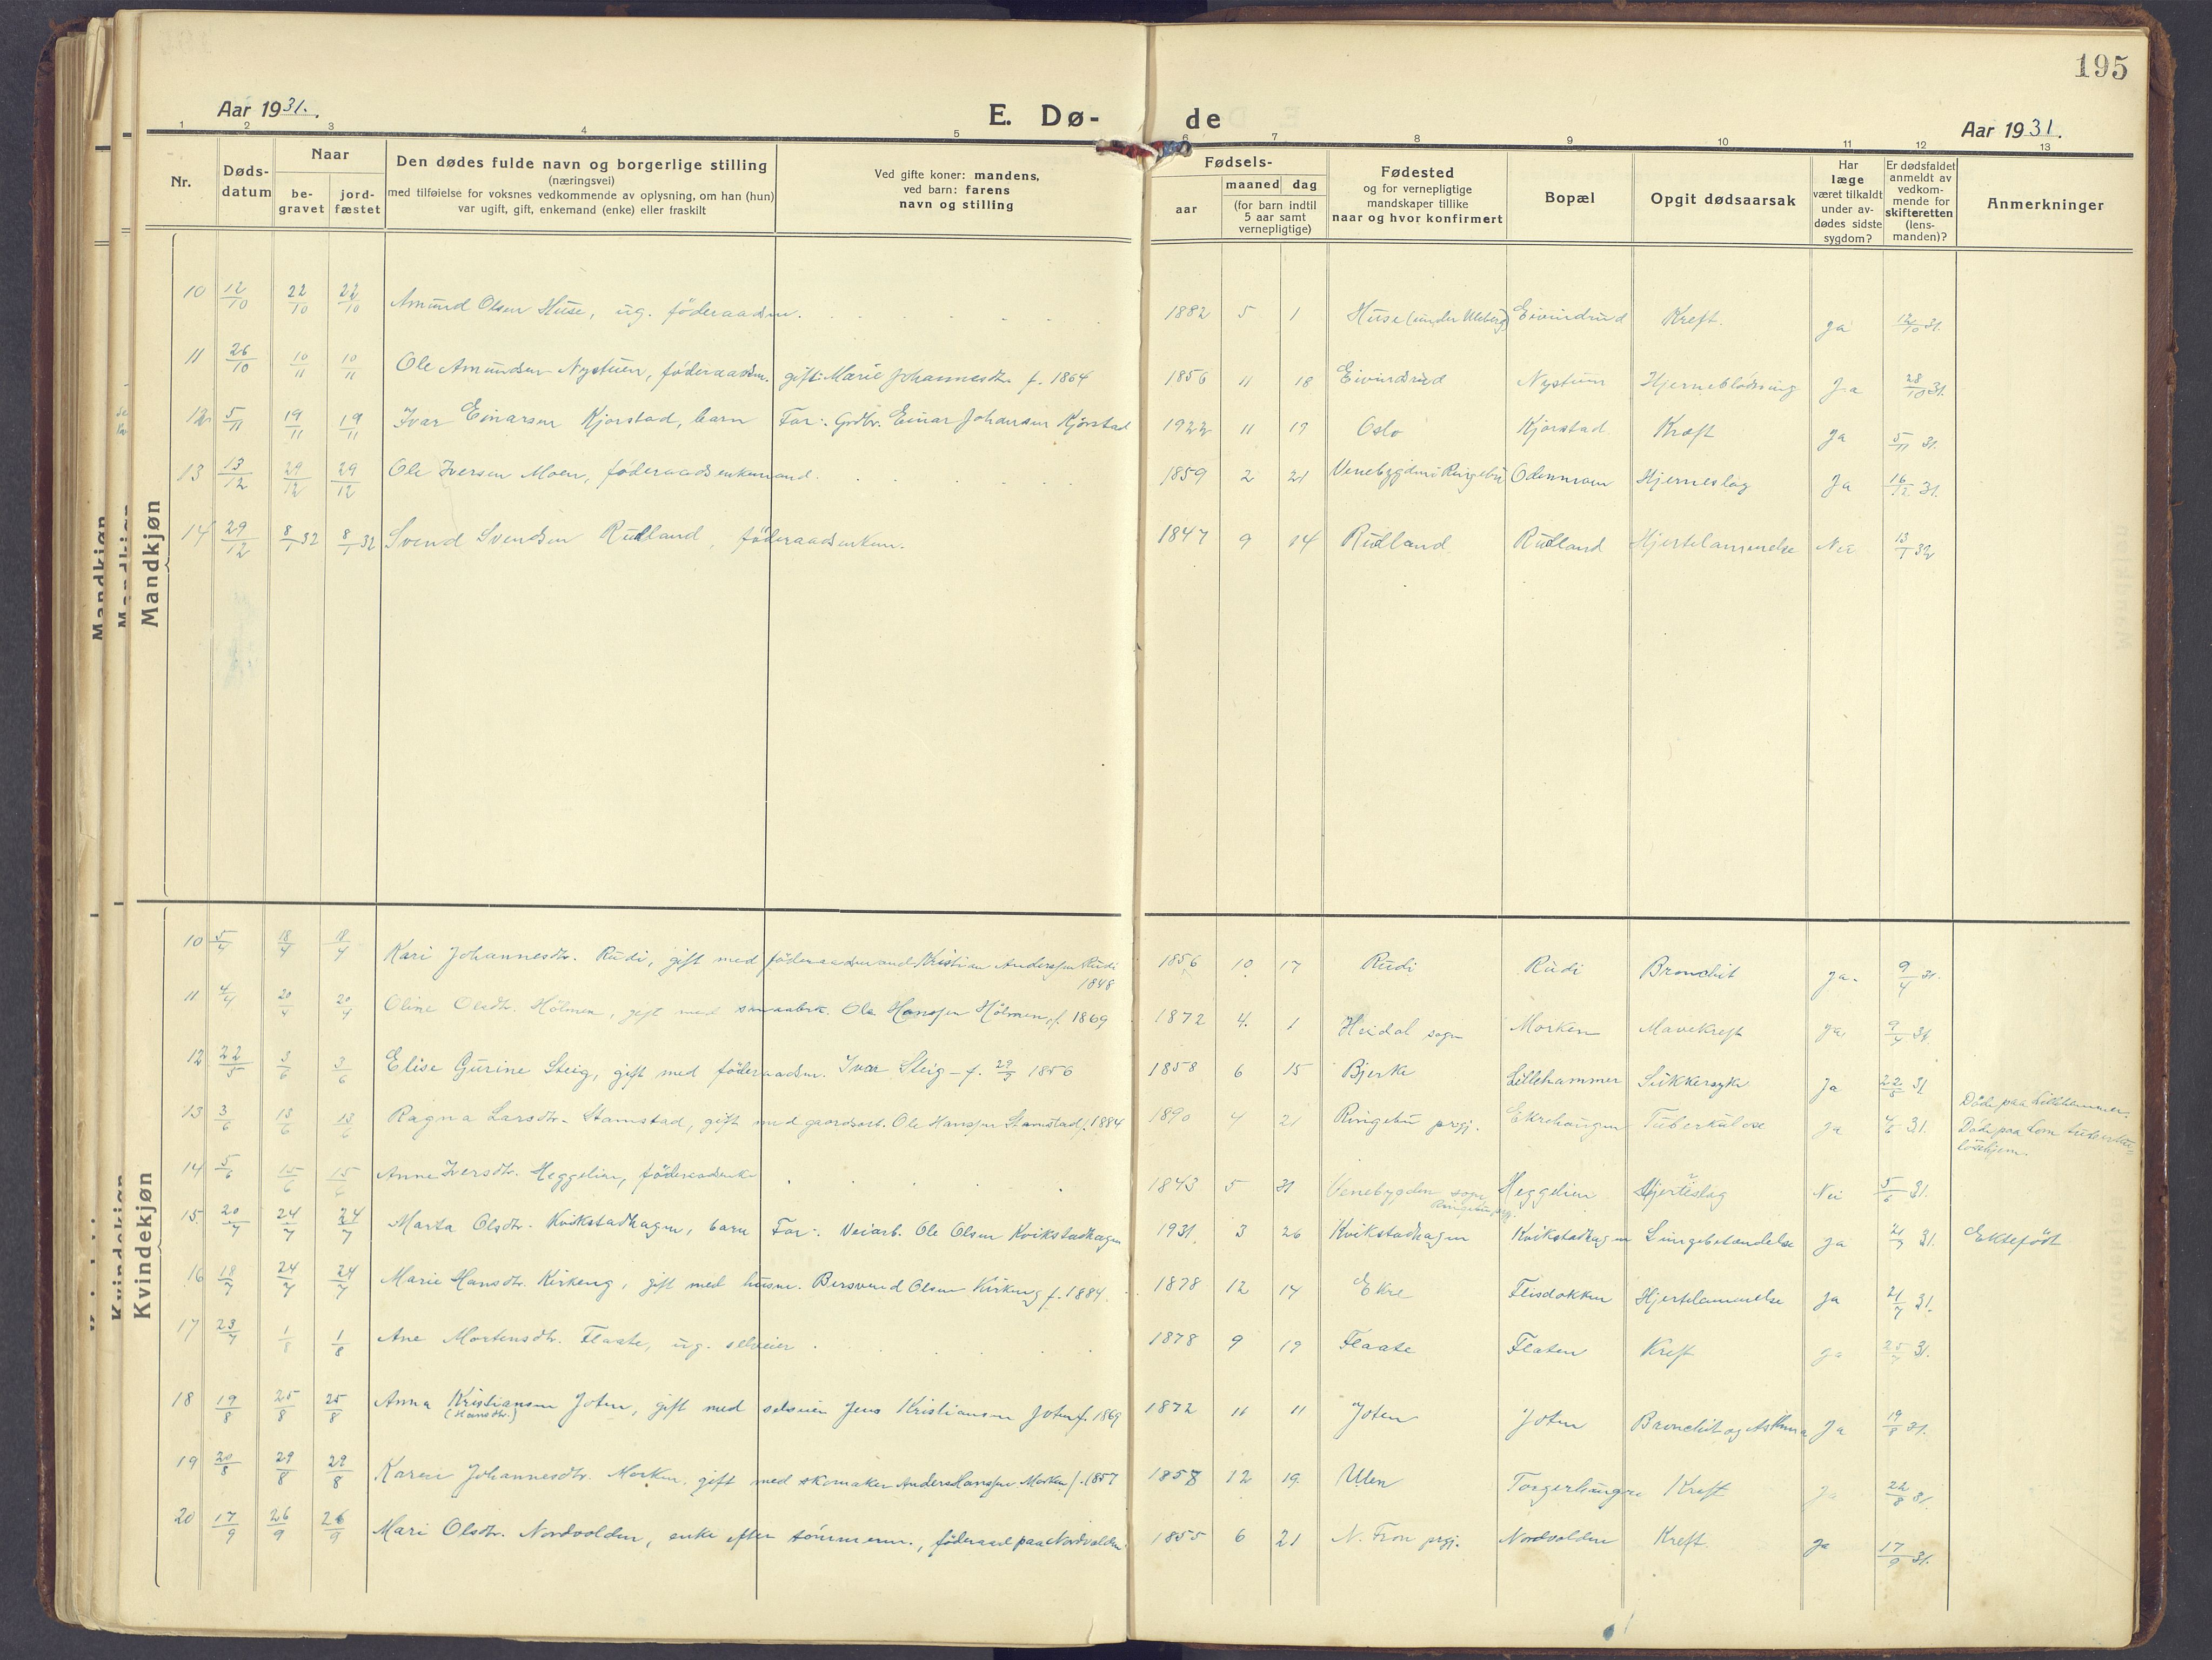 195
Aar 1931.
E. Dø-
de
Aar 1931.
1 2 3 4 5 6 7 8 9 10 11 12 13
Nr.
Døds-
datum
Naar
be-
gravet
jord-
fæstet
Den dødes fulde navn og borgerlige stilling
(næringsvei)
med tilføielse for voksnes vedkommende av oplysning, om han (hun)
var ugift, gift, enkemand (enke) eller fraskilt
Ved gifte koner: mandens,
ved barn: farens
navn og stilling
Fødsels-
aar
maaned dag
(for barn indtil
5 aar samt
vernepligtige)
Fødested
og for vernepligtige
mandskaper tillike
naar og hvor konfirmert
Bopæl
Opgit dødsaarsak
Har
læge
været tilkaldt
under av-
dødes sidste
sygdom?
Er dødsfaldet
anmeldt av
vedkom-
mende for
skifteretten
(lens-
manden)?
Anmerkninger
Mandkjøn
10 12/10 22/10 22/10 Amund Olsen Huse, ug. föderaadsm. 1882 5 1 Huse (under Uleberg) Eivindrud Kreft. ja 12/10 31.
11 26/10 10/11 10/11 Ole Amundsen Nystuen, föderaadsm. gift: Marie Johannesdtr. f. 1864 1856 11 18 Eivindsrud Nystuen Hjerneblödning Ja 28/10 31.
12 5/11 19/11 19/11 Ivar Einarsen Kjorstad, barn Far: Grdbr. Einar Johansen Kjörstad 1922 11 19 Oslo Kjörstad Kræft Ja 5/11 31.
13 13/12 29/12 29/12 Ole Iversen Moen, föderaadsenkemand. 1859 2 21 Venebygden i Ringebu Odenmoen Hjerneslag Ja 16/12 31.
14 29/12 8/1 32 8/1 32 Svend Svendsen Rudland, föderaadsenkem. 1847 9 14 Rudland Rudland Hjertelammelse Nei 13/1 32
Kvindekjøn
10 5/4 18/4 18/4 Kari Johannesdtr. Rudi, gift med föderaadsmand Kristian Anderssen Rudi 1848 1856 10 17 Rudi Rudi Bronchit ja. 9/4 31.
11 4/4 20/4 20/4 Oline Olesdtr. Hölmen, gift med smaabrk. Ole Hanssen Hölmen, f. 1869 1872 4. 1 Heidal sogn Morken Mavekreft ja 9/4 31.
12 22/5 3/6 3/6 Elise Gurine Steig, gift med föderaadsm. Ivar Steig - f. 29/9 1856 1858 6 15 Bjerke Lillehammer Sukkersyke Ja 22/5 31 Döde paa Lillehammer.
13 3/6 13/6 13/6 Ragna Larsdtr. Stamstad, gift med gaardsarb. Ole Hanssen Stamstad f. 1884 1890 4 21 Ringebu prgj. Ekrehaugen Tuberkulose ja 4/6 31. Döde paa Lom tuberku-
losehjem.
14 5/6 15/6 15/6 Anne Iversdtr. Heggelien, föderaadsenke 1843 5 31 Venebygden sogn Ringebu prgj. Heggelien Hjerteslag Nei 5/6 31.
15. 20/7 24/7 24/7 Marta Olsdtr. Kvikstadhagen, barn Far: Veiarb. Ole Olsen Kvikstadhagen 1931. 3 26 Kvikstadhagen Kvikstadhagen Lungebetændelse ja 21/7 31. Ektefödt
16 18/7 24/7 24/7 Marie Hansdtr. Kirkeng, gift med husm. Bersvend Olsen Kirkeng f. 1884. 1878 12 14 Ekre Flisdokken Hjertelammelse ja 21/7 31.
17 23/7 1/8 1/8 Ane Mortensdtr. Flaate, ug. selveier 1878 9 19 Flaate Flaten Kreft ja 25/7 31.
18 19/8 25/8 25/8 Anna Kristiansen Joten, gift med selveier Jens Kristiansen Joten f. 1869 1872 11 11 Joten Joten Bronchit og Asthma Ja 19/8 31.
(Hansdtr.)
19 20/8 29/8 29/8 Karen Johannesdtr. Morken. gift med skomaker Anders Hanssen Morken f. 1857 1858 12 19. Ulen Torgerhaugen Kreft ja 22/8 31.
20 17/9 26/9 26/9 Mari Olsdtr. Nordvolden, enke efter tömmerm., föderaad paa Nordvolden 1855 6 21 N. Fron prgj. Nordvolden Kreft ja 17/9 31.